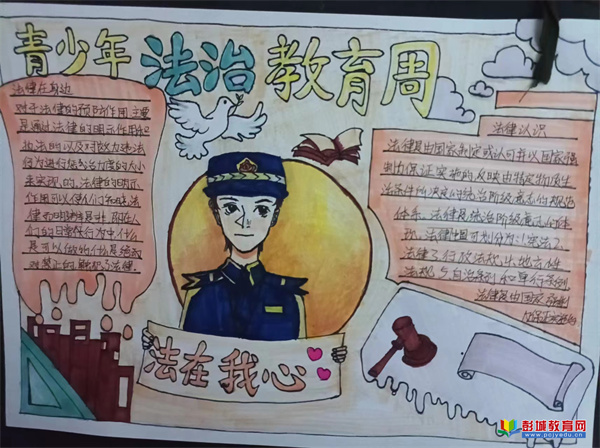 青少年 法治 教育周
法律在身边
对于法律的预防作用主要
是通过法律的明示作用和
执法
以及对违法
行为进行惩治力度的大小
来实现的,法律的明示
作用可以使人们知晓法
律而明辨是非,即在人
们的日常行为中,什么
是可以做的什么是绝对
禁止的,触犯
法律
法律认识
法律是由国家制定或认可并以国家强
制力保证实施的反映由特定物质生
活条件所决定的统治阶级意志的规范
体系。法律是统治阶级意志的体
现,法律
可划分为:宪法2.
法律3.行政法规4.地方性
法规5.自治条例和单行条例
法律是由国家
法在我心
彭城教育网
www.pcjyedu.cn